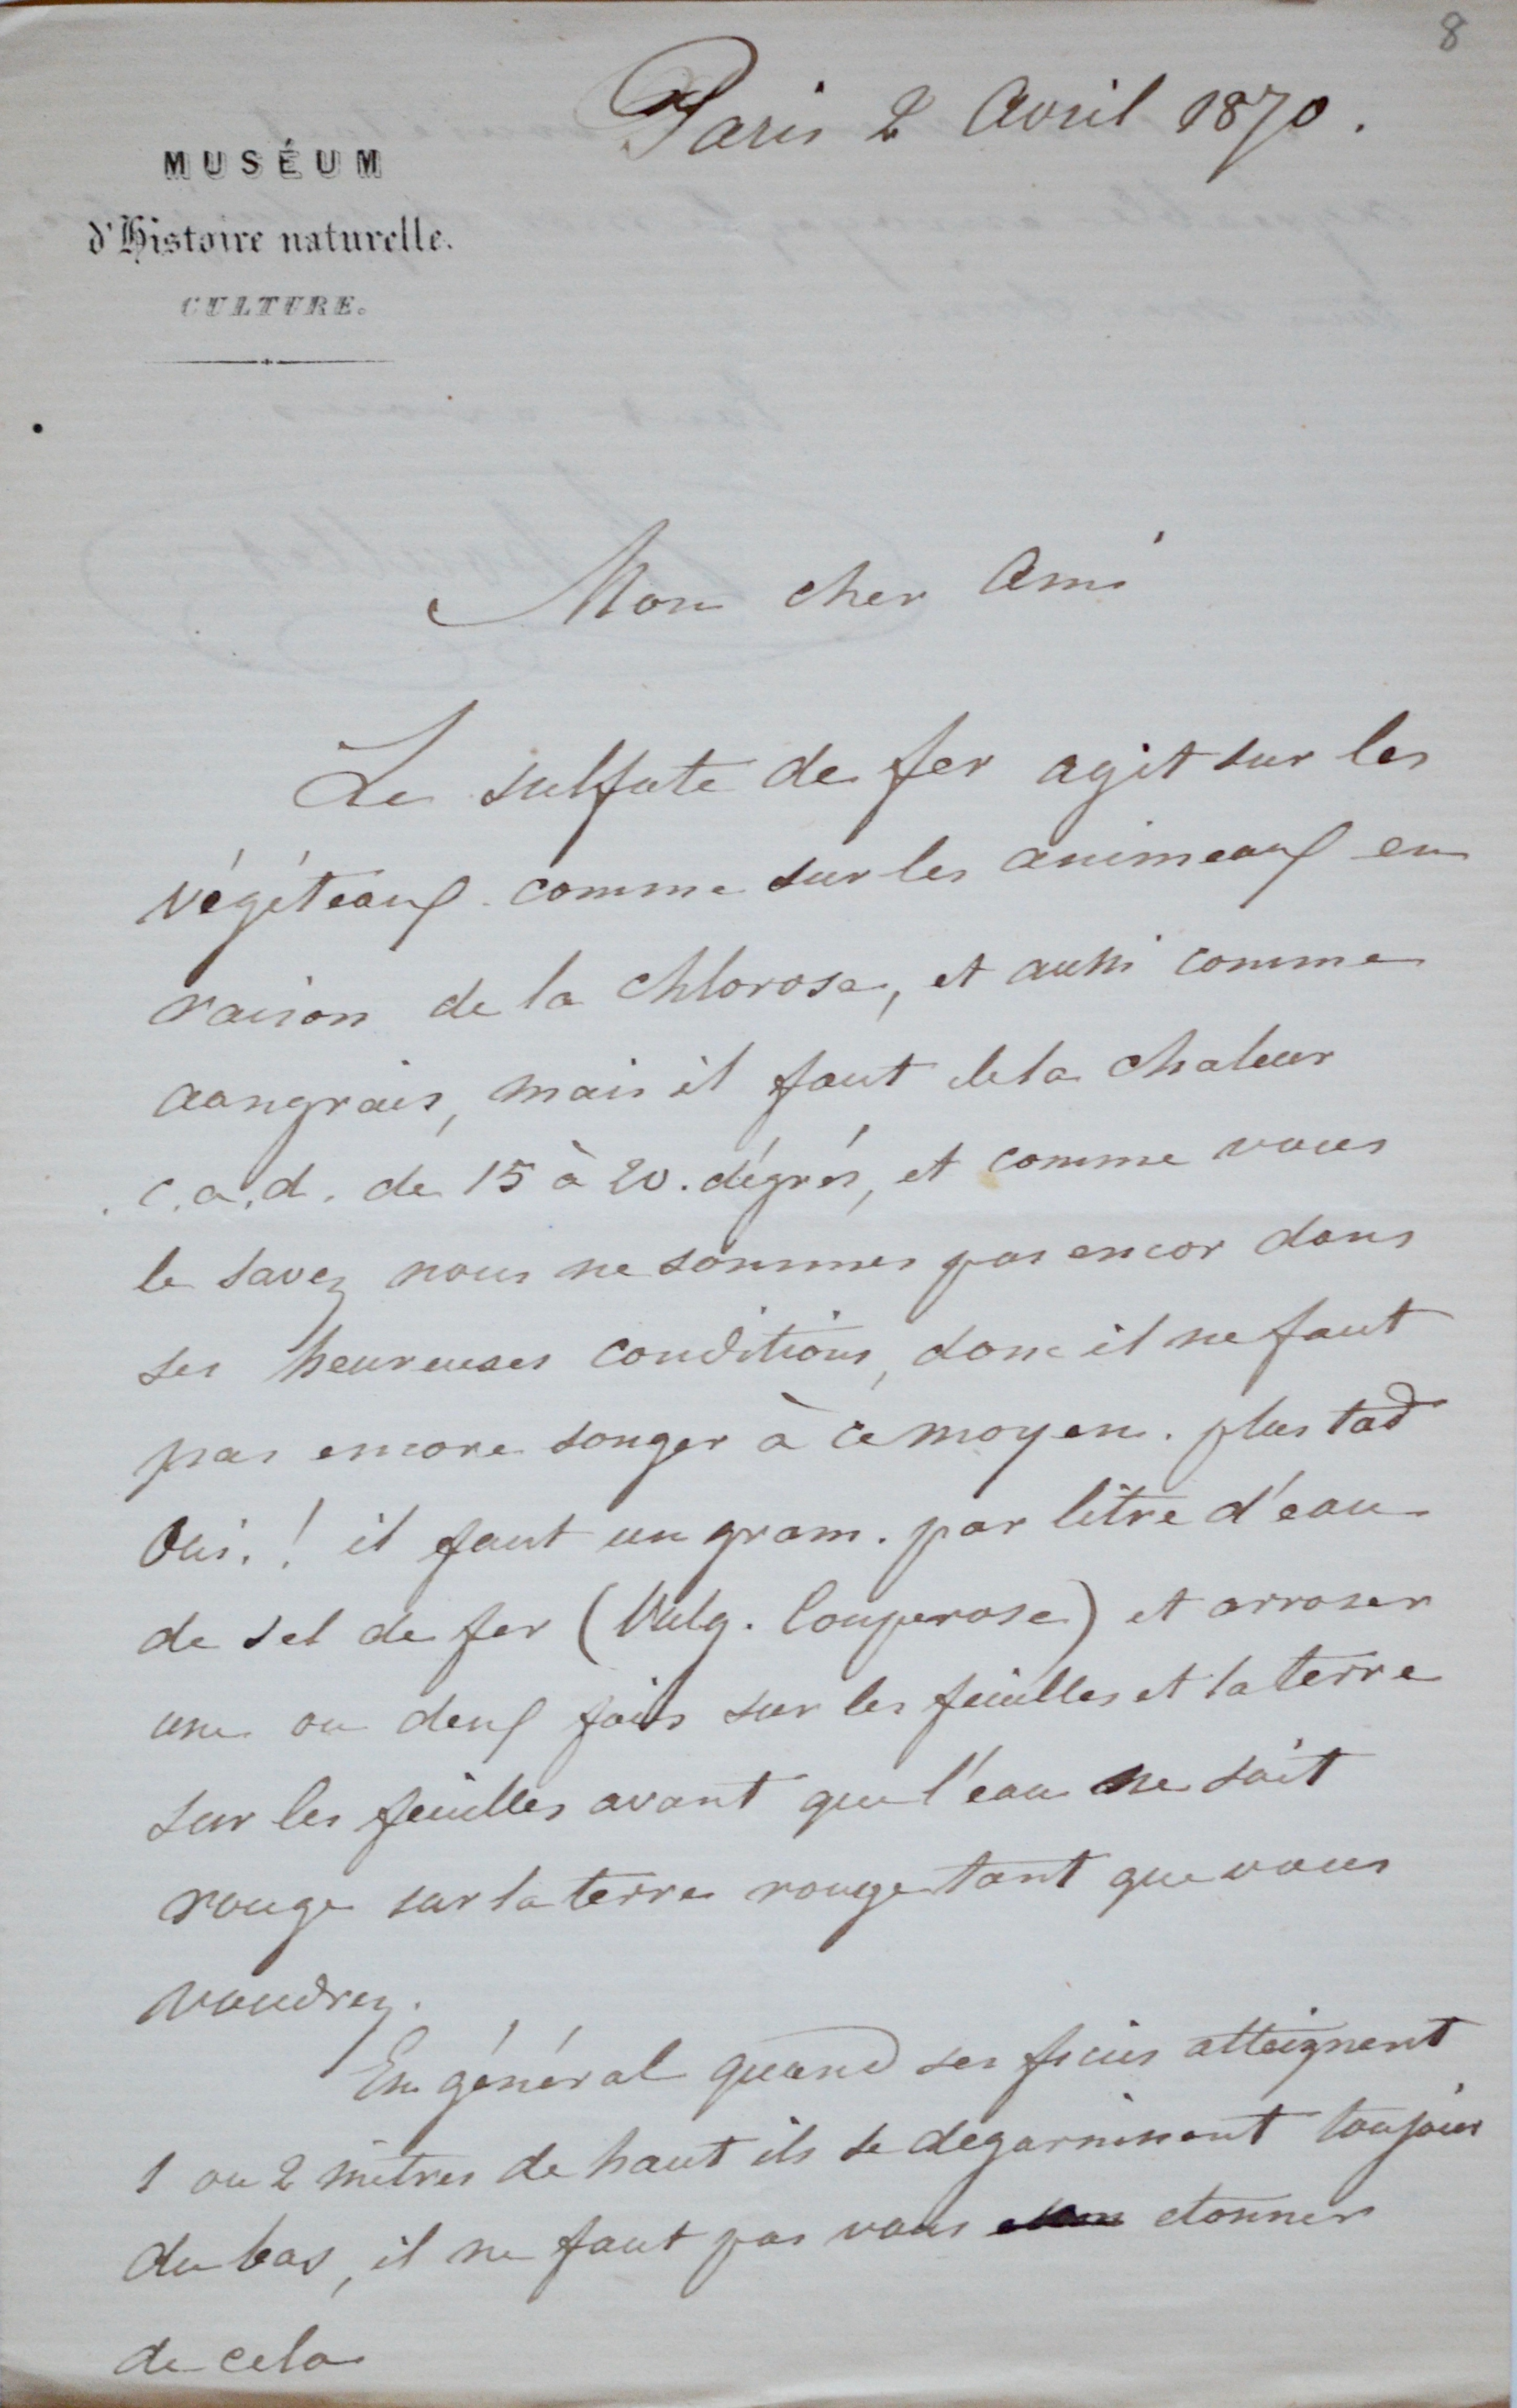 8
Paris 2 Avril 1870.
MUSÉUM
d'Histoire naturelle.
CULTURE.
Mon cher Ami
Le sulfate de fer agit sur les
végéteaux comme sur les animeaux en
raison de la Chlorose, et aussi comme
aangrais, mais il faut de la chaleur
c.a.d. de 15 à 20. dégrés, et comme vous
le savez nous ne sommes pas encor dans
ses heureuses conditions, donc il ne faut
pas encore songer à ce moyen. plus tad
Oui.! il faut un gram. par litre d'eau
de sel de fer (Vulg. Couperose) et arroser
une ou deux fois sur les feuilles et la terre
sur les feuilles avant que l'eau ne soit
rouge sur la terre rouge tant que vous
voudrez.
En général quand ses ficus atteignent
1 ou 2 mètres de haut ils se degarnissent toujours
du bas, il ne faut pas vous etonner
de cela